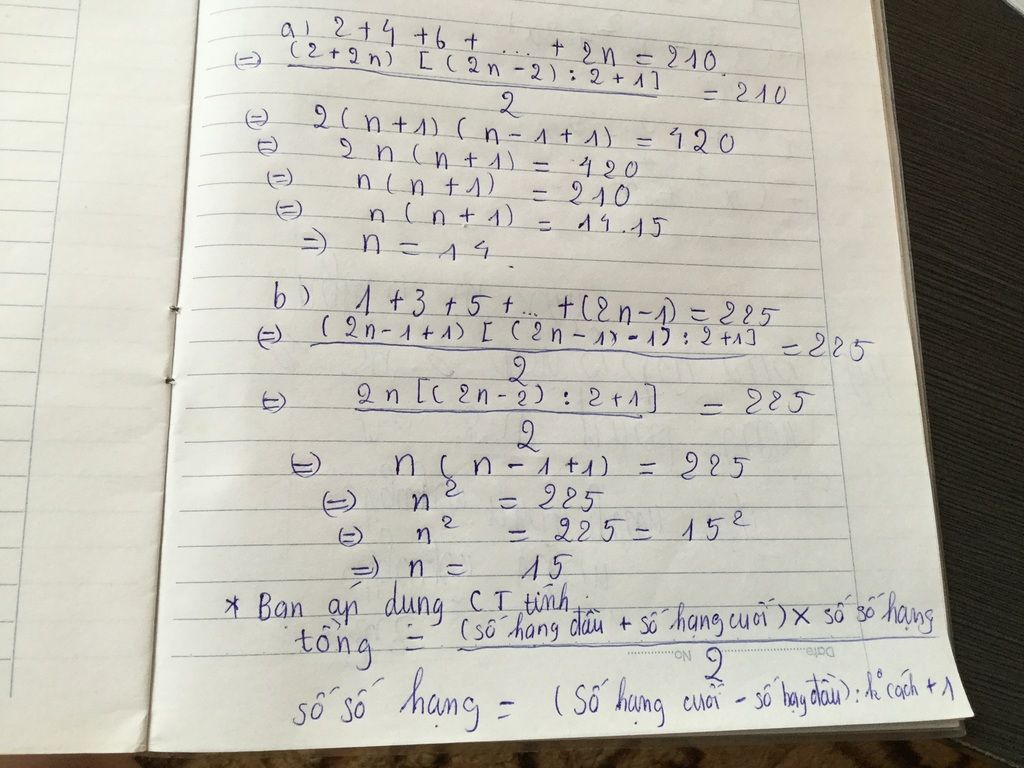 a) 2 + 4 + 6 + ... + 2n = 210.
(=) (2 + 2n) [(2n - 2) : 2 + 1] / 2 = 210
(=) 2(n + 1)(n - 1 + 1) = 420
(=) 2n(n + 1) = 420
(=) n(n + 1) = 210
(=) n(n + 1) = 14.15
=) n = 14.
b) 1 + 3 + 5 + ... + (2n - 1) = 225
(=) (2n - 1 + 1) [(2n - 1) - 1) : 2 + 1] / 2 = 225
(=) 2n [(2n - 2) : 2 + 1] / 2 = 225
(=) n (n - 1 + 1) = 225
(=) n² = 225
(=) n² = 225 = 15²
=) n = 15
* Bạn áp dụng CT tính.
tổng = (số hạng đầu + số hạng cuối) × số số hạng / 2
Date No.
số số hạng = (Số hạng cuối - số hạng đầu) : k° cách + 1